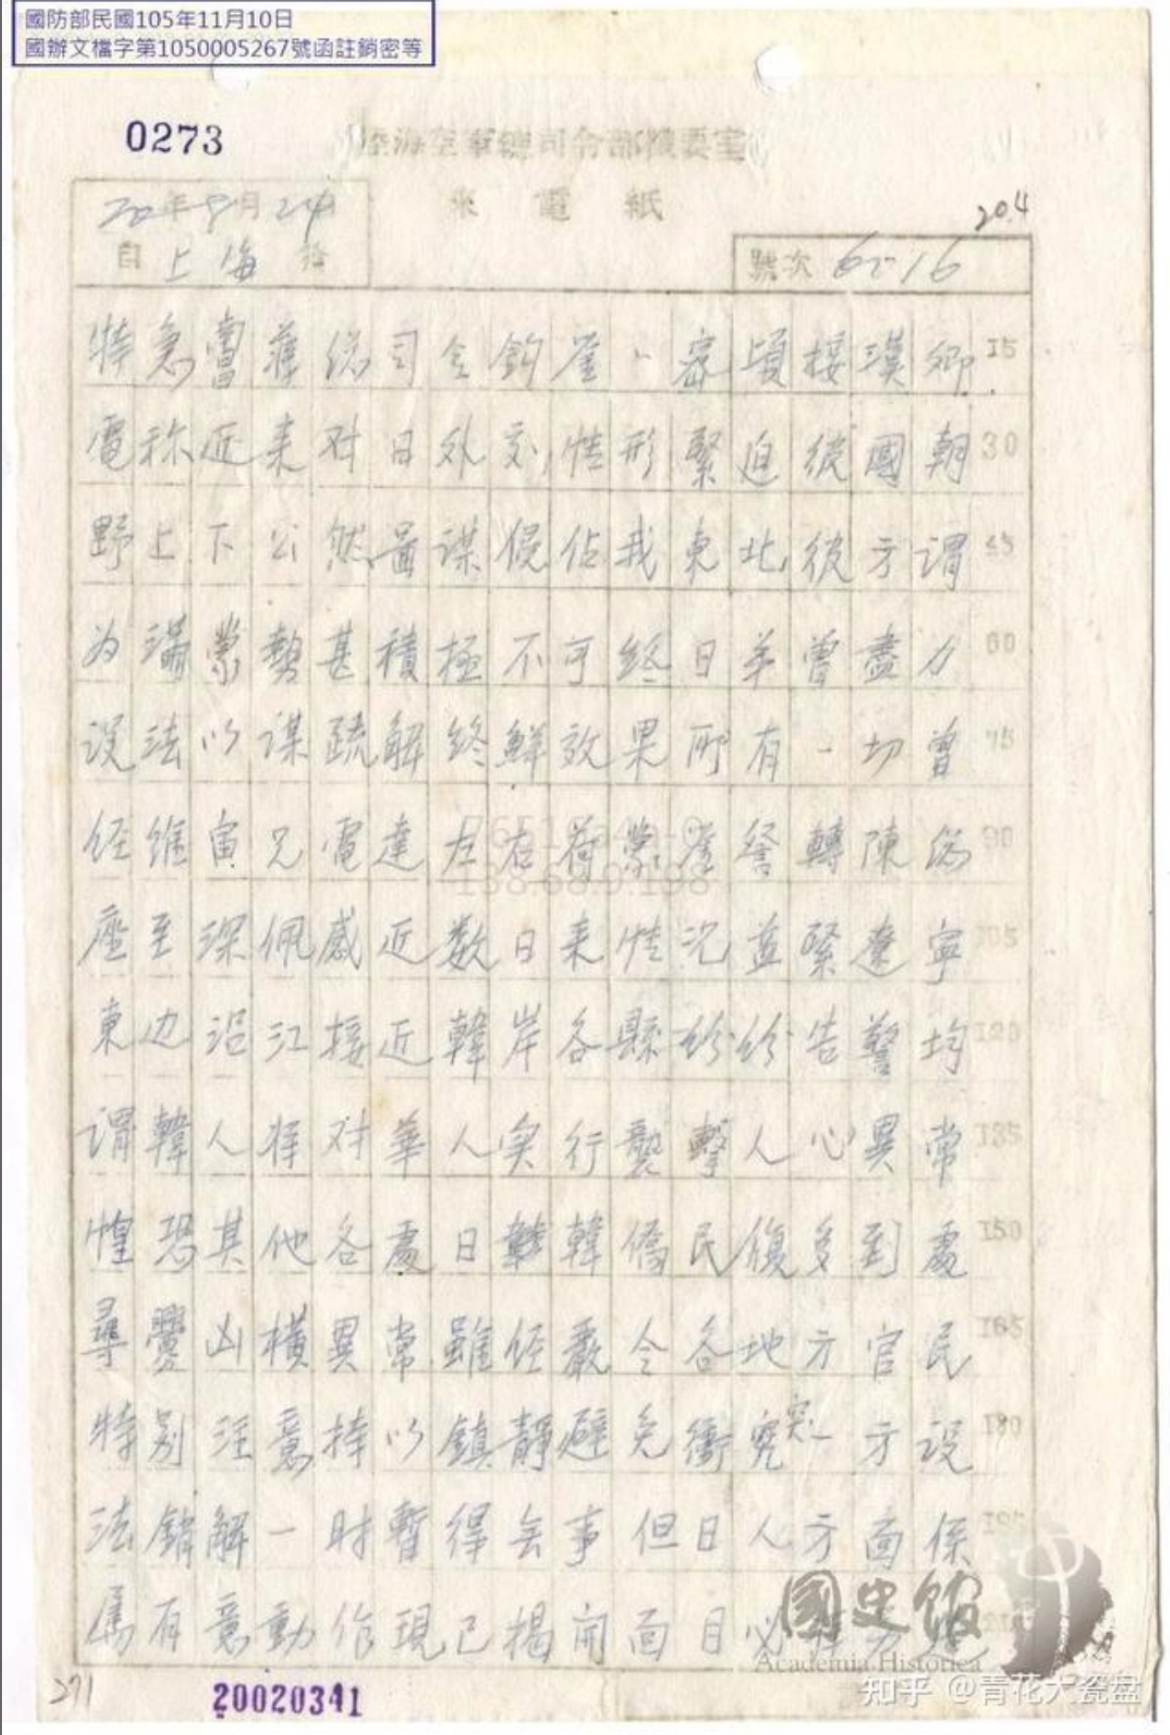 國防部民國105年11月10日
國辦文檔字第1050005267號函註銷密等
0273
陸海空軍總司令部機要室
來電紙
20年8月24日
20.4
自上海發
號次 6516
特急南昌蔣總司令鈞鑒、密頃接漢卿 15
電称近来对日外交情形緊迫彼國朝 30
野上下公然啚谋侵佔我東北彼方谓 45
为滿蒙勢甚積極不可终日弟曾盡力 60
设法以谋疏解终鮮效果所有一切曾 75
经維寅兄電達左右荷蒙鉴詧轉陳總 90
座至深佩感近数日来情况益緊遼寧 105
東边沿江接近韓岸各縣纷纷告警均 120
谓韓人将对華人实行襲擊人心異常 135
惶恐其他各處日韓僑民復多到處 150
尋釁凶橫異常雖经嚴令各地方官民 165
特别注意持以鎮静避免衝突一方设 180
法銷解一时暫得无事但日人方面係 195
属有意動作現已揭開面目必
271
20020341
國史館
Academia Historica
知乎 @青花大瓷盘